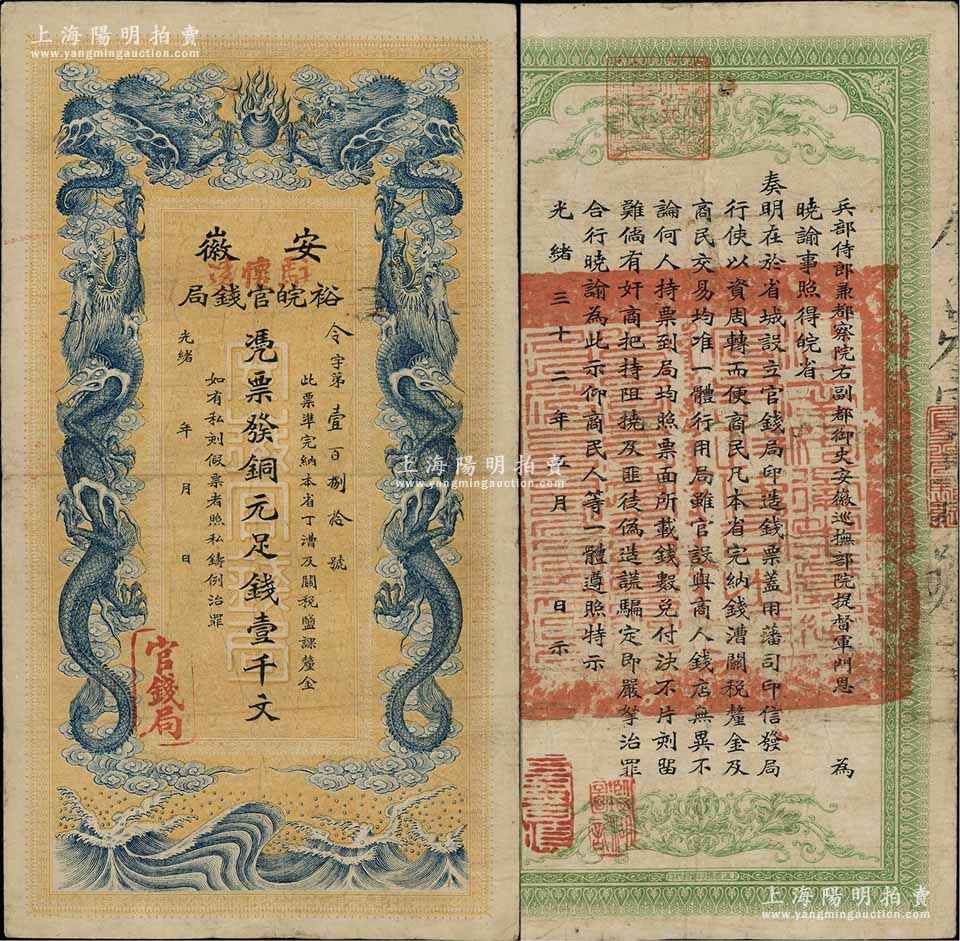 上海陽明拍賣
www.yangmingauction.com
安徽
裕皖官錢局
令字第壹百捌拾號
此票準完納本省丁漕及關稅鹽課釐金
憑票發銅元足錢壹千文
如有私刻假票者照私鑄例治罪
光緒 年 月 日
官錢局
上海陽明拍賣
www.yangmingauction.com
兵部侍郎兼都察院右副都御史安徽巡撫部院提督軍門恩 為
曉諭事照得皖省
奏明在於省城設立官錢局印造錢票蓋用藩司印信發局
行使以資周轉而便商民凡本省完納錢漕關稅釐金及
商民交易均准一體行用局雖官設與商人錢店無異不
論何人持票到局均照票面所載錢數兌付決不片刻留
難倘有奸商把持阻撓及匪徒偽造謊騙定即嚴拏治罪
合行曉諭為此示仰商民人等一體遵照特示
光緒三十二年五月 日示
上海陽明拍賣
www.yangmingauction.com